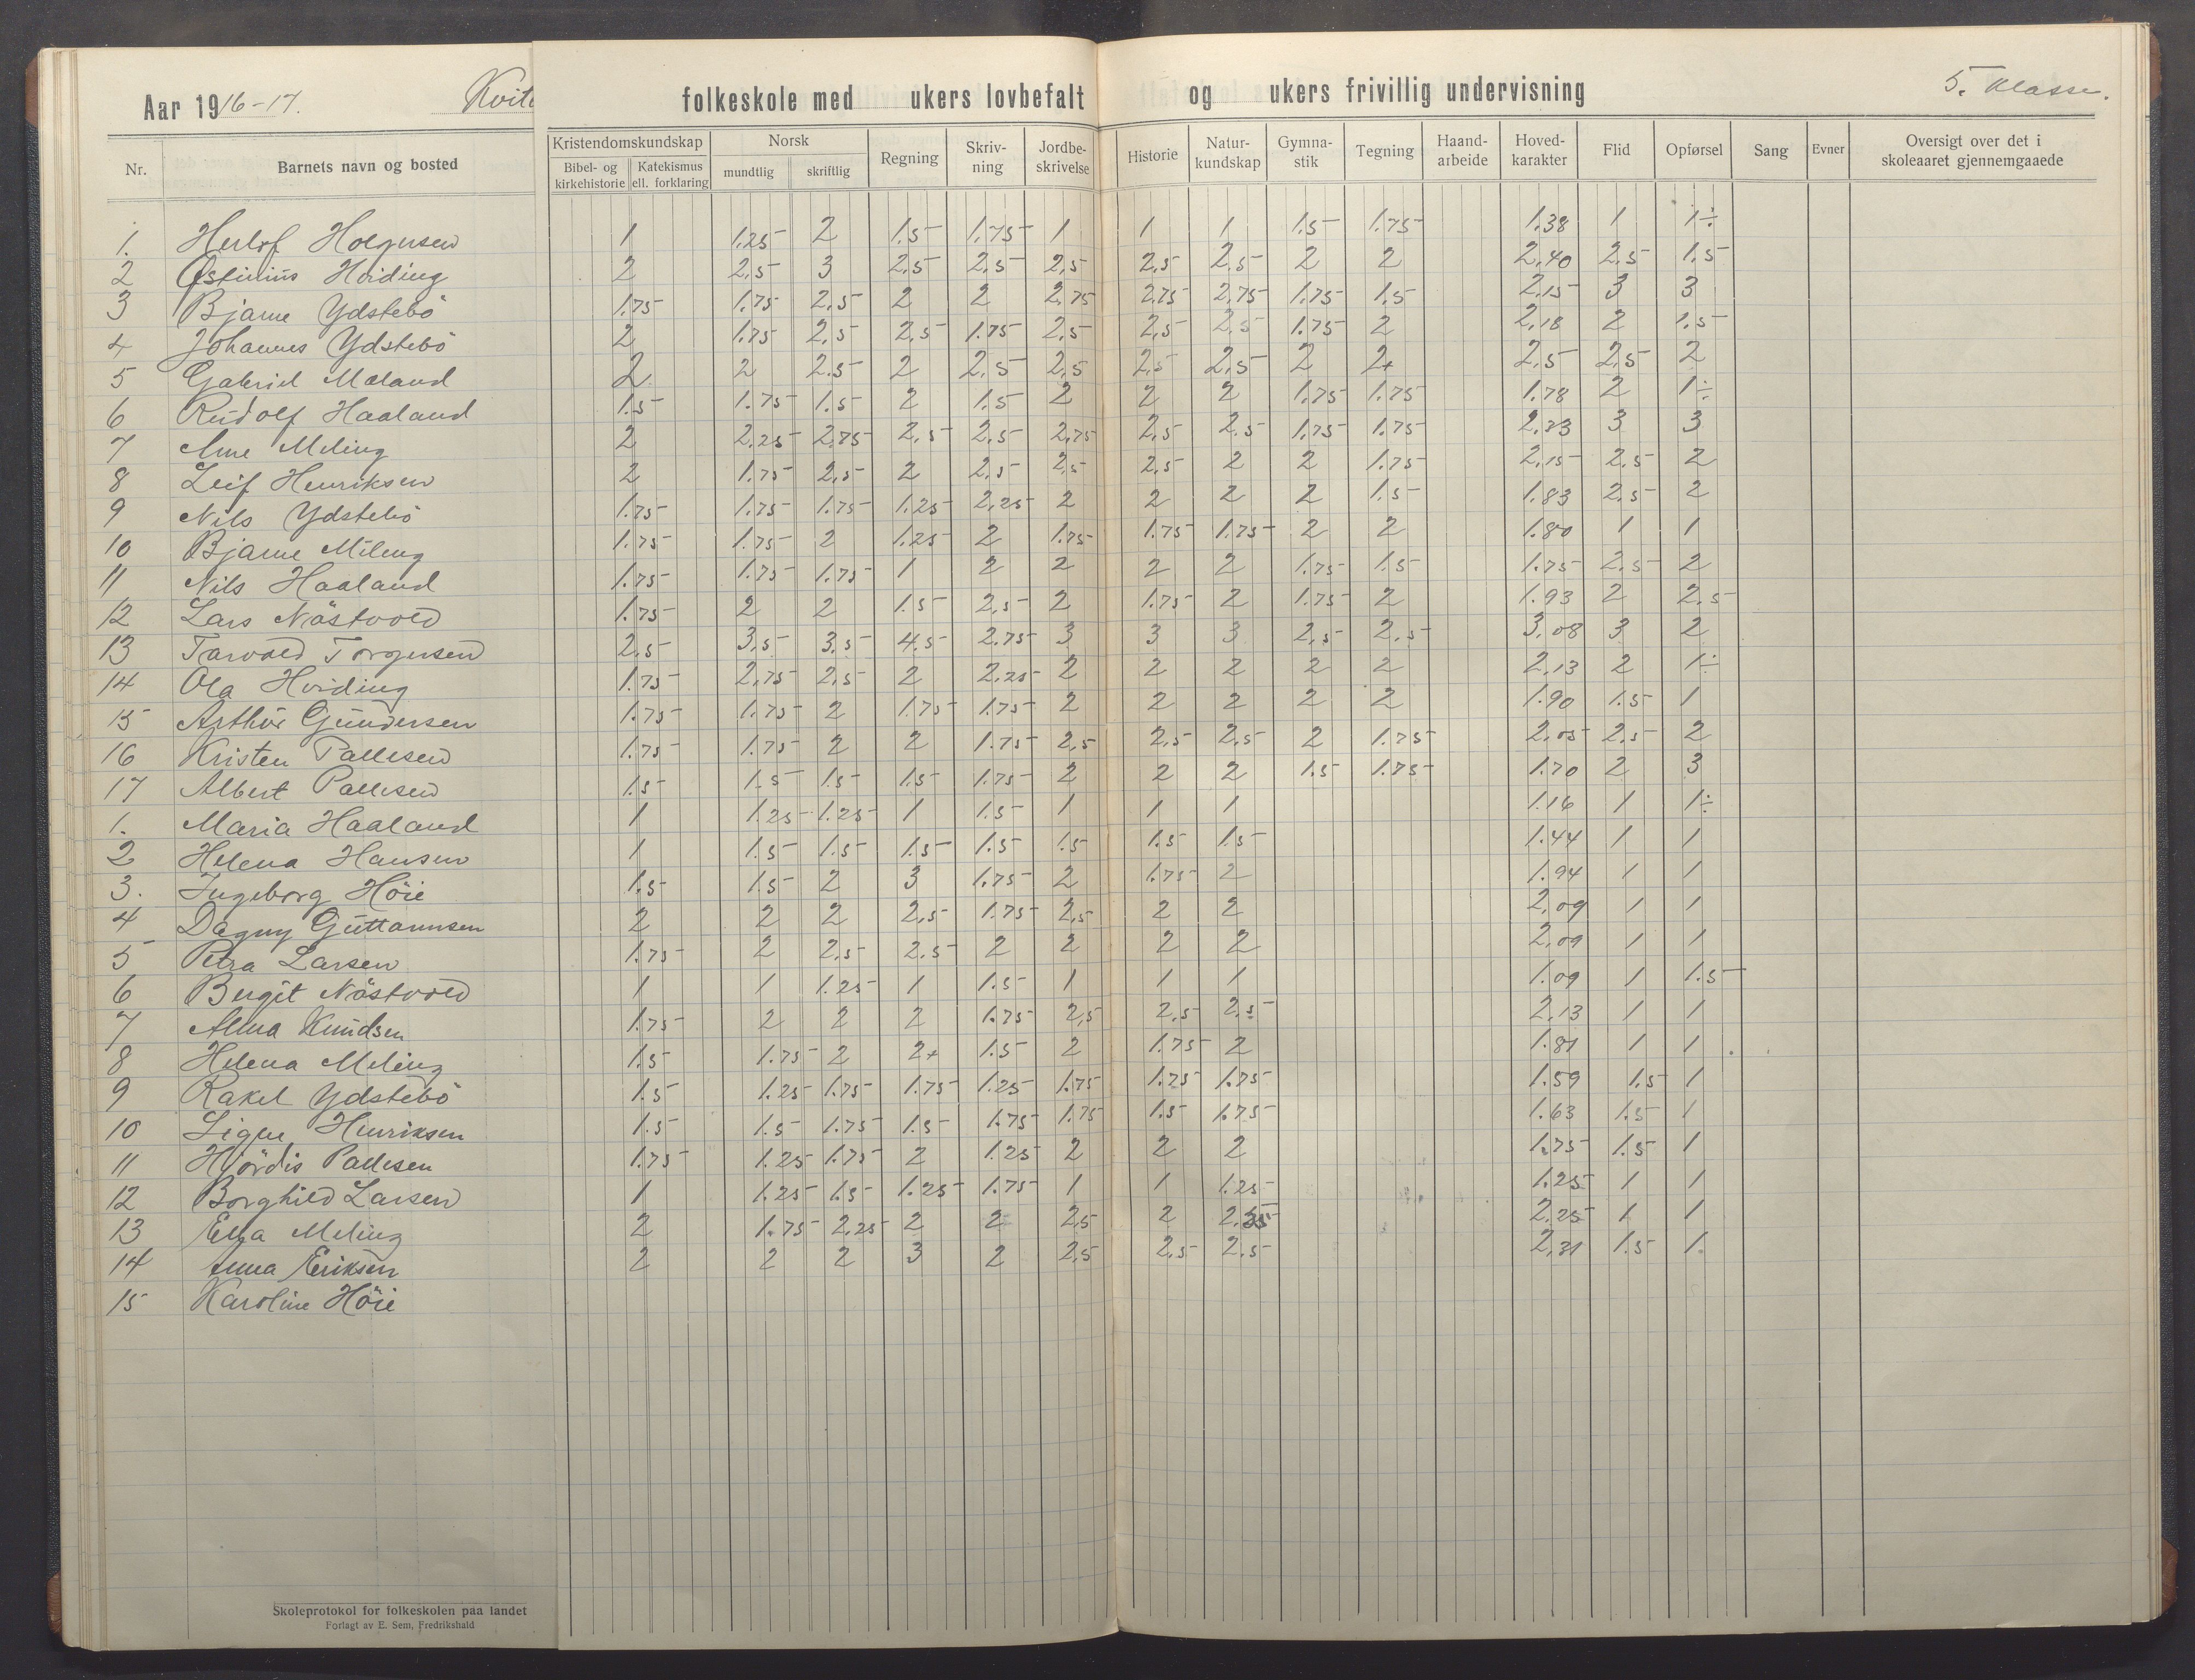 Aar 1916-17. Kvit folkeskole med ukers lovbefalt og ukers frivillig undervisning 5. Klasse.
Nr. Barnets navn og bosted Kristendomskundskap Bibel- og kirkehistorie Katekismus ell. forklaring Norsk mundtlig skriftlig Regning Skriv-ning Jordbe-skrivelse Historie Natur-kundskap Gymna-stik Tegning Haand-arbeide Hoved-karakter Flid Opførsel Sang Evner Oversigt over det i skoleaaret gjennemgaaede
1. Herlof Holgersen 1 1.25 2 1.5 1.75 1 1 1 1.5 1.75 1.38 1 1÷
2 Østinius Hviding 2 2,5 3 2,5 2,5 2,5 2,5 2,5 2 2 2,40 2,5 1.5
3 Bjarne Ydstebö 1.75 1.75 2,5 2 2 2,75 2,75 2,75 1.75 1.5 2,15 3 3
4 Johannes Ydstebö 2 1.75 2,5 2,5 1.75 2,5 2,5 2,5 1.75 2 2,18 2 1.5
5 Gabriel Mæland 2 2 2.5 2 2,5 2,5 2,5 2,5 2 2+ 2,5 2,5 2
6 Rudolf Haaland 1.5 1.75 1.5 2 1.5 2 2 2 1.75 1.75 1.78 2 1÷
7 Arne Meling 2 2,25 2,75 2,5 2,5 2,75 2,5 2.5 1.75 1.75 2,23 3 3
8 Leif Henriksen 2 1.75 2,5 2 2,5 2,5 2,5 2 2 1.75 2,15 2,5 2
9 Nils Ydstebö 1.75 1.75 1.75 1.25 2,25 2 2 2 2 1.5 1.83 2,5 2
10 Bjarne Meling 1.75 1.75 2 1.25 2 1.75 1.75 1.75 2 2 1.80 1 1
11 Nils Haaland 1.75 1.75 1.75 1 2 2 2 2 1.75 1.5 1.75 2,5 2
12 Lars Nästvold 1.75 2 2 1.5 2,5 2 1.75 2 1.75 2 1.93 2 2,5
13 Tarvald Torgersen 2,5 3,5 3,5 4.5 2.75 3 3 3 2,5 2,5 3,08 3 2
14 Ola Hviding 1.75 2,75 2,5 2 2,25 2 2 2 2 2 2,13 2 1÷
15 Arthur Gundersen 1.75 1.75 2 1.75 1.75 2 2 2 2 2 1.90 1.5 1
16 Kristen Pallesen 1.75 1.75 2 2 1.75 2,5 2,5 2,5 2 1.75 2,05 2,5 2
17 Albert Pallesen 1.5 1.5 1.5 1.5 1.75 2 2 2 1.5 1.75 1.70 2 3
1. Maria Haaland 1 1.25 1.25 1 1.5 1 1 1 1.16 1 1÷
2 Helena Hansen 1 1.5 1.5 1.5 1.5 1.5 1.5 1.5 1.44 1 1
3. Ingeborg Höie 1.5 1.5 2 3 1.75 2 1.75 2 1.94 1 1
4 Dagny Guttormsen 2 2 2 2,5 1.75 2,5 2 2 2,09 1 1
5 Petra Larsen 1.75 2 2,5 2.5 2 2 2 2 2,09 1 1
6 Bergit Nästvold 1 1 1.25 1 1.5 1 1 1 1.09 1 1.5
7 Alma Knudsen 1.75 2 2 2 1.75 2,5 2,5 2.5 2,13 1 1
8 Helena Meling 1.5 1.75 2 2+ 1.5 2 1.75 2 1.81 1 1
9 Rakel Ydstebö 1.5 1.25 1.75 1.75 1.25 1.75 1.75 1.75 1.59 1.5 1
10 Signe Henriksen 1.5 1.5 1.75 1.5 1.75 1.75 1.5 1.75 1.63 1.5 1
11 Hjördis Pallesen 1.75 1.25 1.75 2 1.25 2 2 2 1.75 1.5 1
12 Borghild Larsen 1 1.25 1.5 1.25 1.75 1 1 1.25 1.25 1 1
13 Elga Meling 2 1.75 2,25 2 2 2,5 2 2,25 1 1
14 Anna Eriksen 2 2 2 3 2 2,5 2,5 2,5 2,31 1.5 1
15 Karoline Höie
Skoleprotokol for folkeskolen paa landet
Forlagt av E. Sem, Fredrikshald